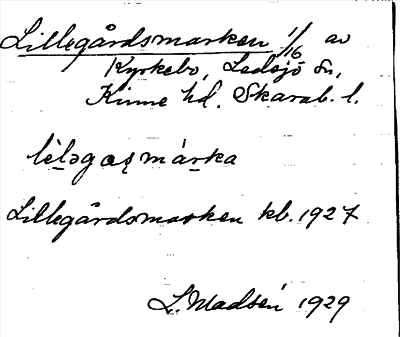 Lillegårdsmarken 1/16 av
Kyrkebo, Ledsjö sn,
Kinne hd. Skarab. l.
lèləgaʂmárka
Lillegårdsmarken kb. 1927
L. Madsén 1929